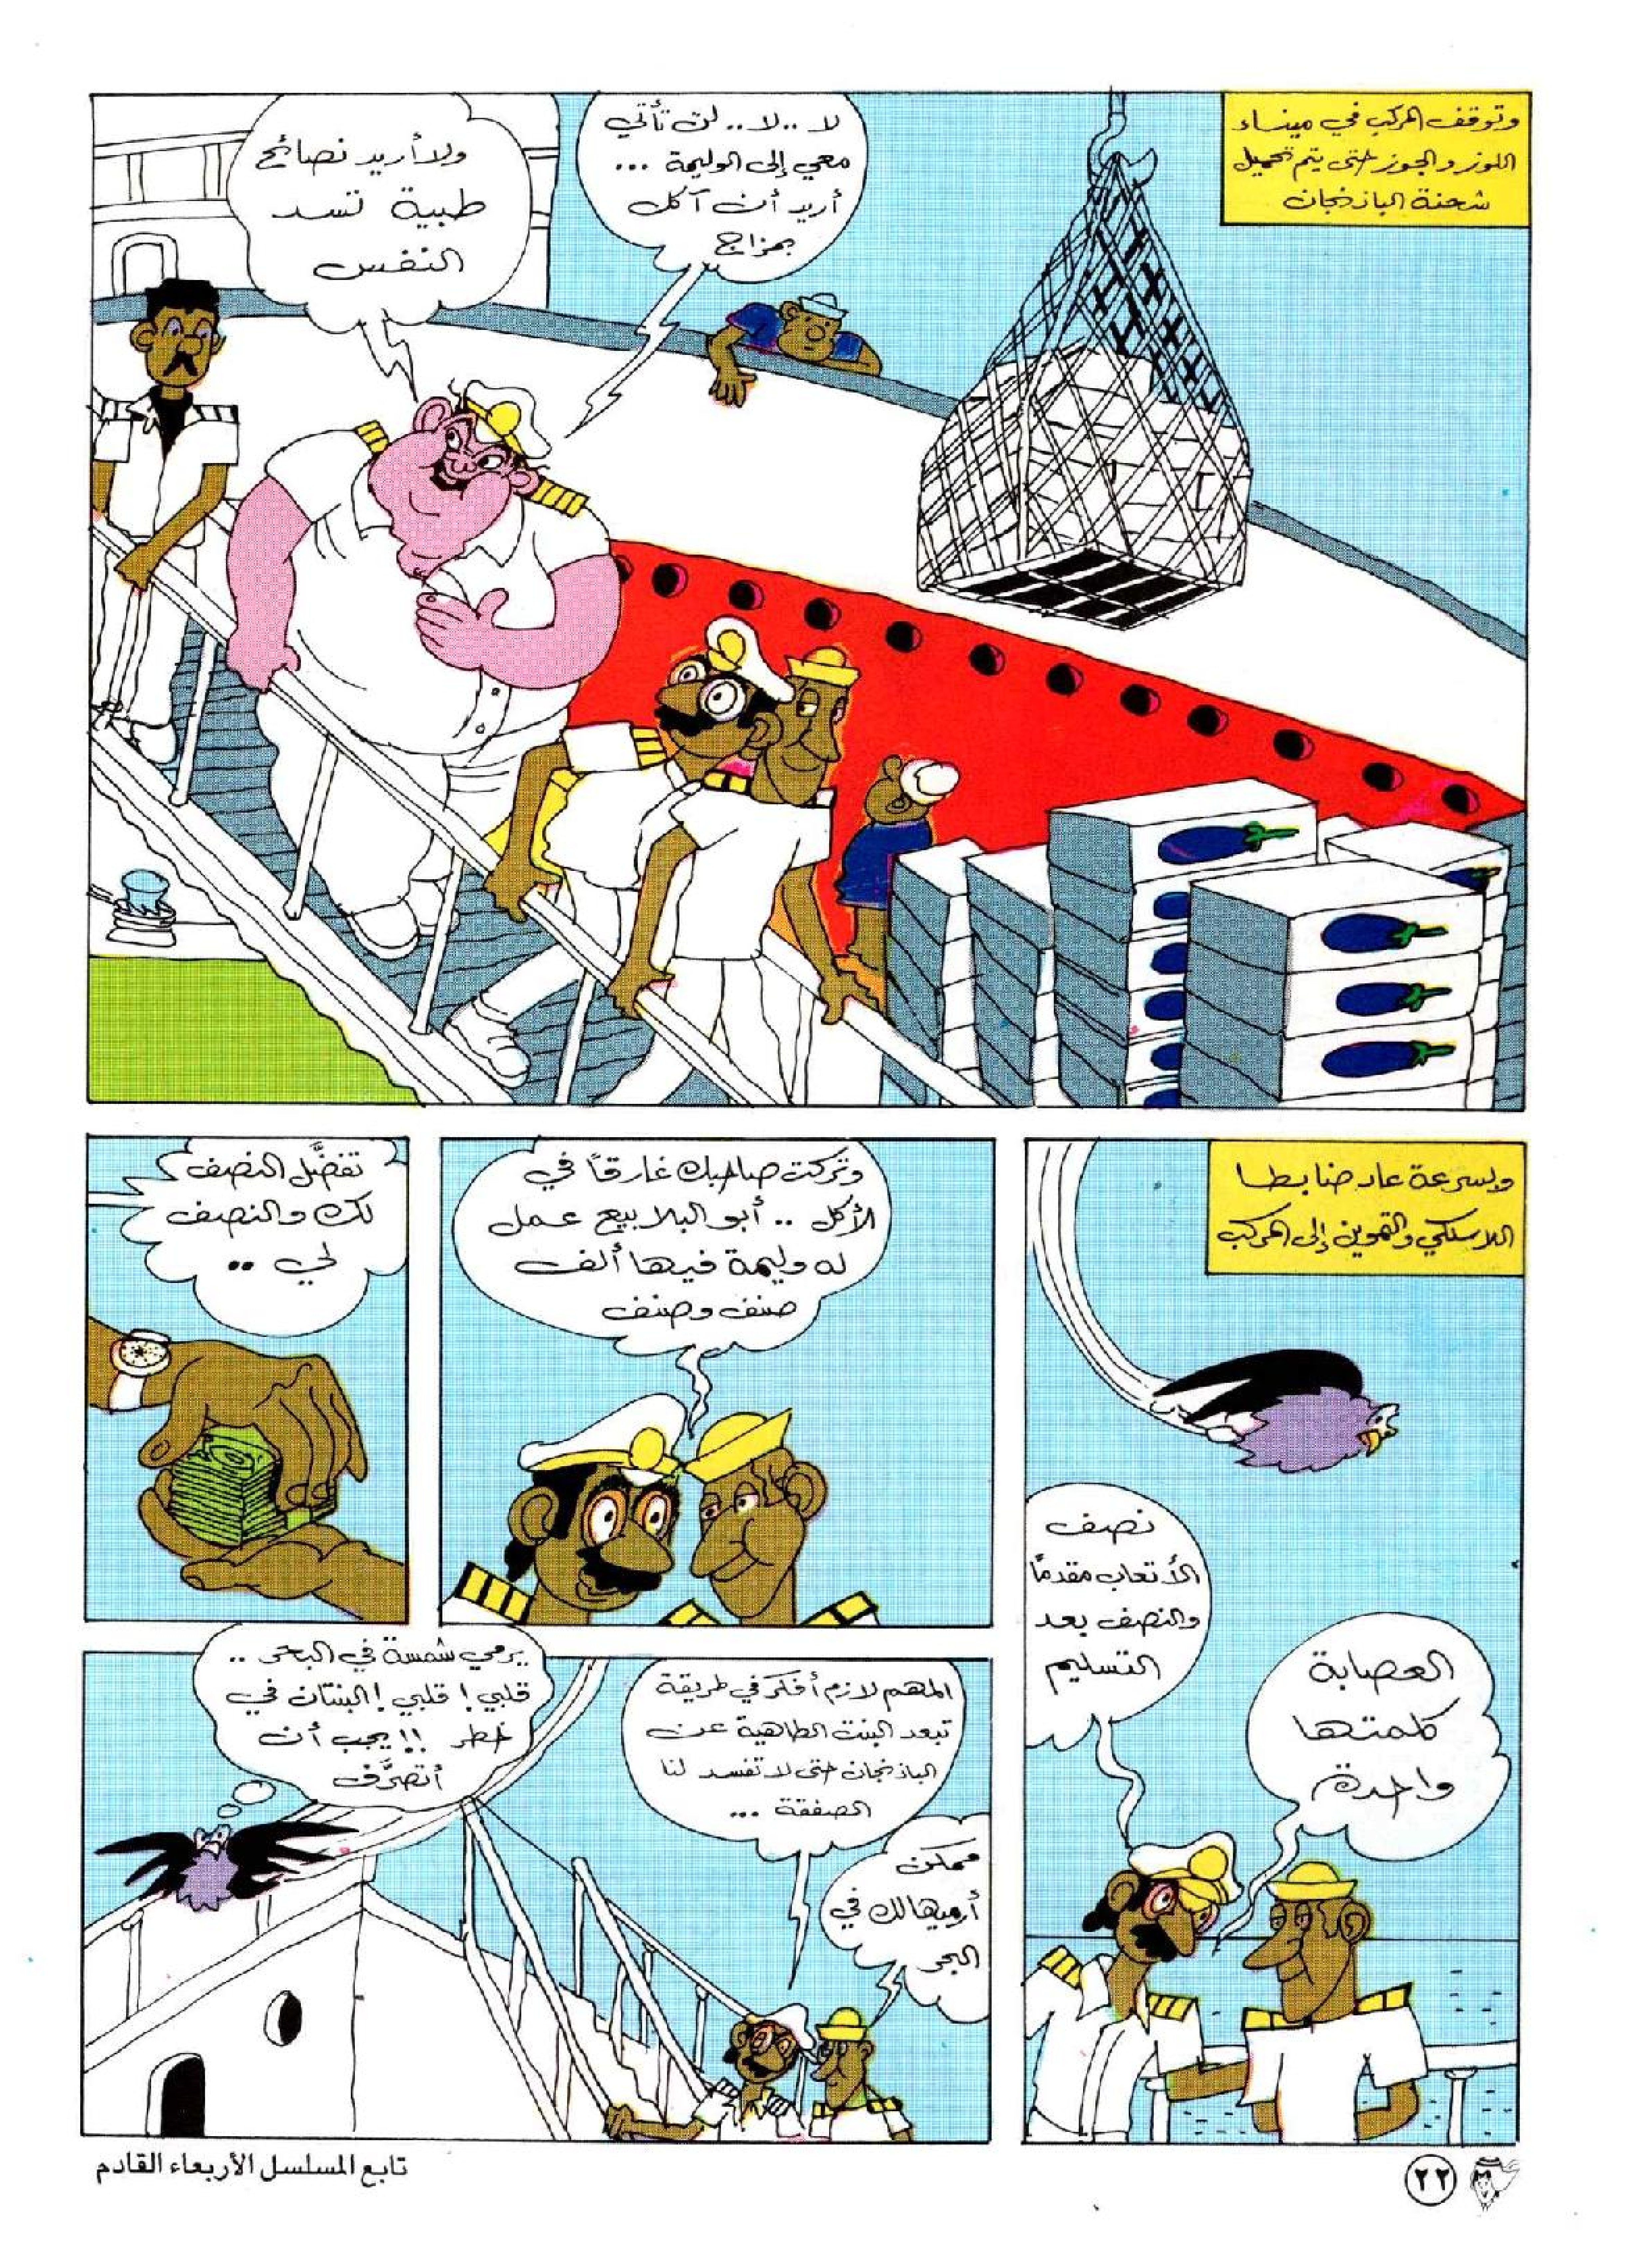 وتوقف المركب في ميناء
اللوز والجوز حتى يتم تحميل
شحنة الباذنجان
لا .. لا .. لن تأتي
معي إلى الوليمة ...
أريد أن آكل
بمزاج
ولا أريد نصائح
طبية تسد
النفس
وبسرعة عاد ضابطا
اللاسلكي والتموين إلى المركب
نصف
الأتعاب مقدمًا
والنصف بعد
التسليم
العصابة
كلمتها
واحدة
وتركت صاحبك غارقًا في
الأكل .. أبو البلابيع عمل
له وليمة فيها ألف
صنف وصنف
تفضَّل النصف
لك والنصف
لي ..
المهم لازم أفكر في طريقة
تبعد البنت الطاهية عن
الباذنجان حتى لا تفسد لنا
الصفقة ...
ممكن
أرميها لك في
البحر
يرمي شمسة في البحر ..
قلبي ! قلبي ! البنتان في
خطر !! يجب أن
أتصرَّف
تابع المسلسل الأربعاء القادم
٢٢